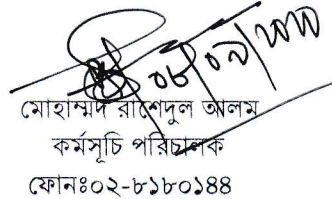 ০৮/০৯/২০১১
মোহাম্মদ রাশেদুল আলম
কর্মসূচি পরিচালক
ফোনঃ০২-৮১৮০১৪৪